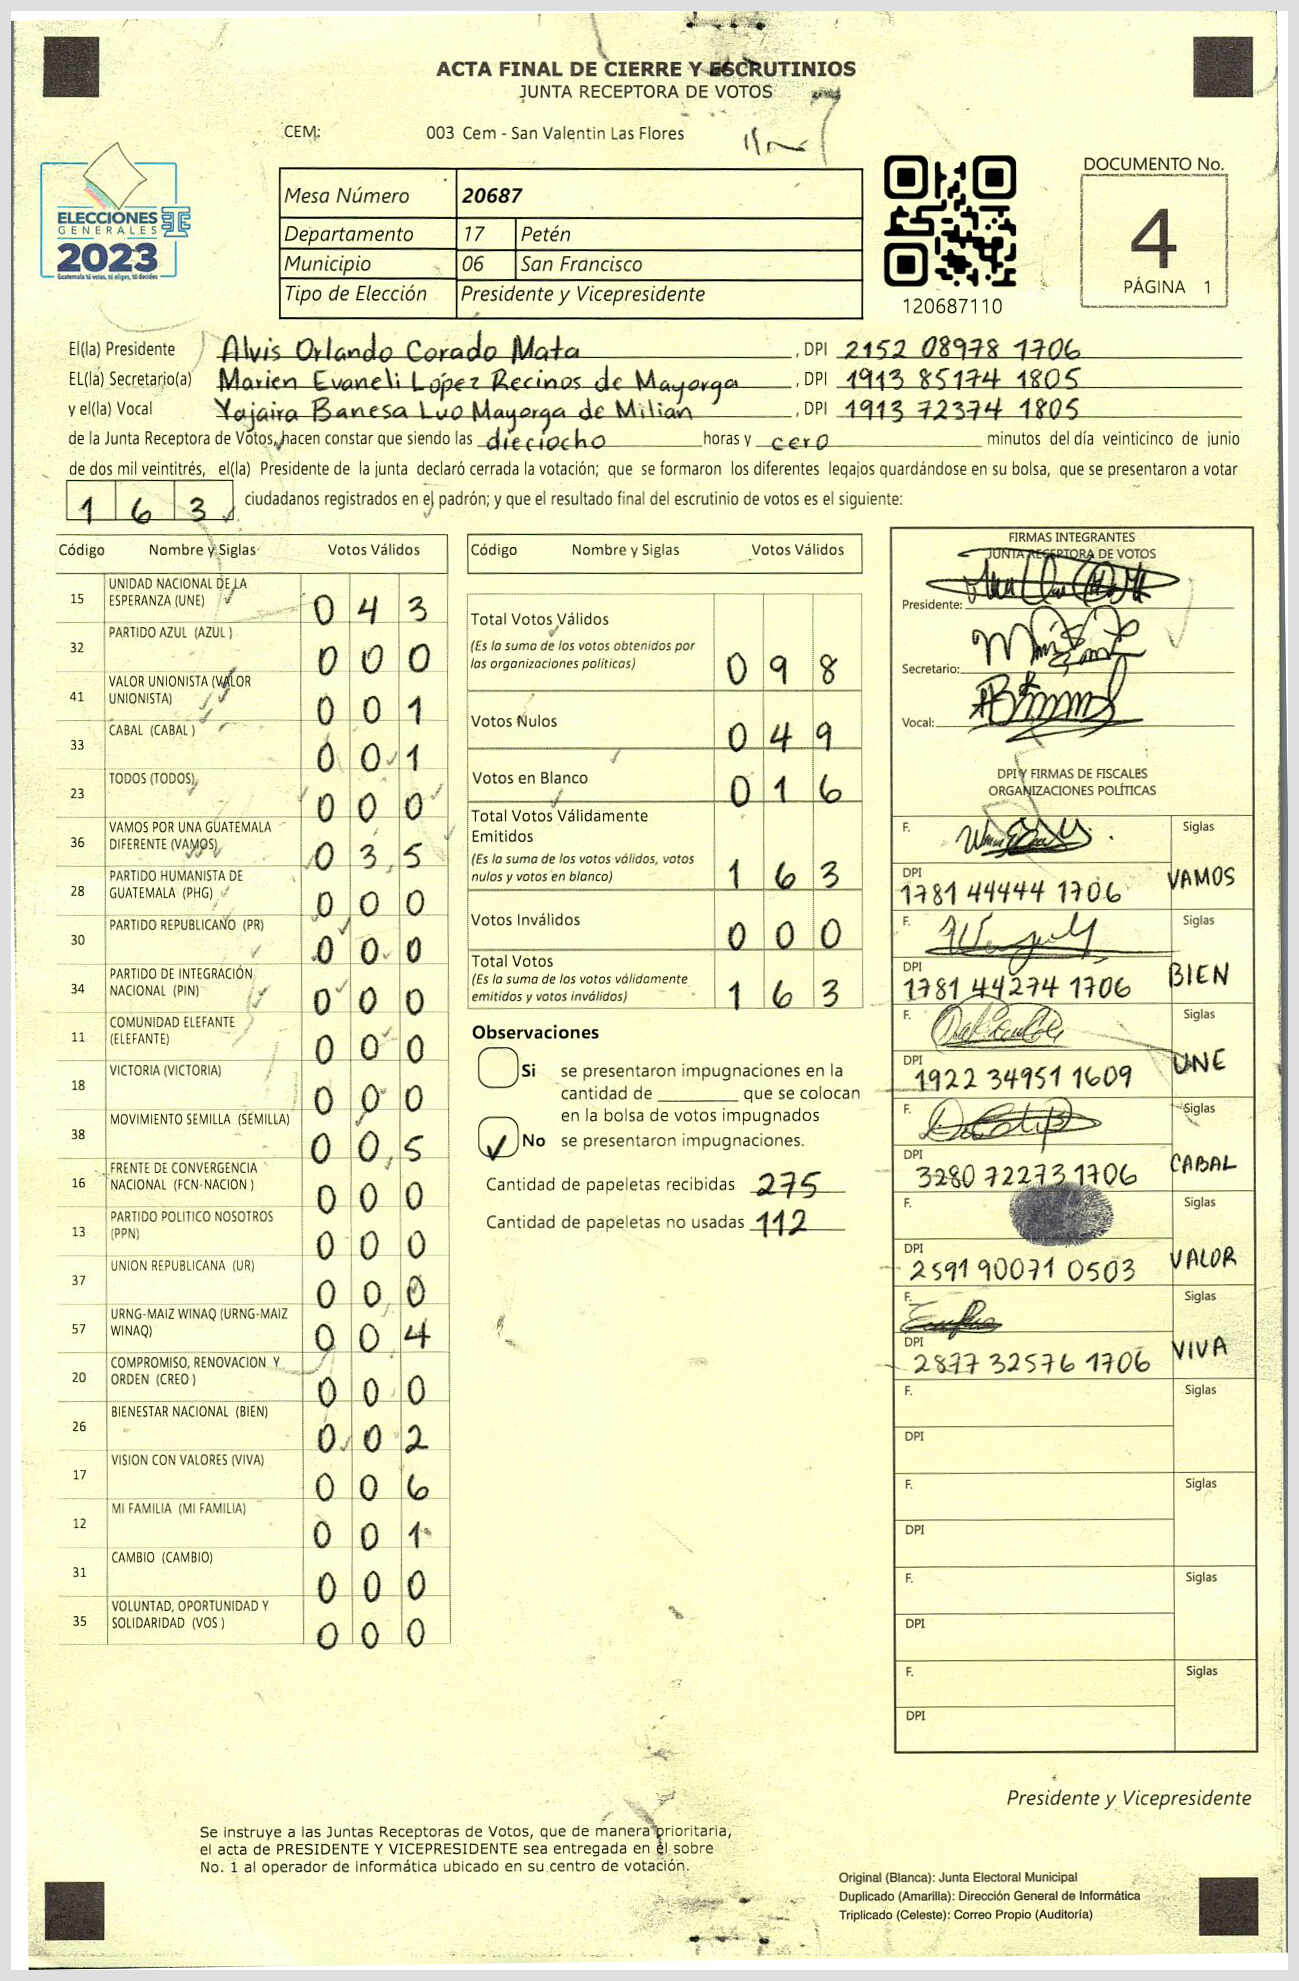 ACTA FINAL DE CIERRE Y ESCRUTINIOS
JUNTA RECEPTORA DE VOTOS
CEM: 003 Cem - San Valentin Las Flores
ELECCIONES
GENERALES
2023
Guatemala tú votas, tú eliges, tú decides
Mesa Número 20687
Departamento 17 Petén
Municipio 06 San Francisco
Tipo de Elección Presidente y Vicepresidente
120687110
DOCUMENTO No.
4
PÁGINA 1
El(la) Presidente Alvis Orlando Corado Mata, DPI 2152 08978 1706
EL(la) Secretario(a) Marien Evaneli López Recinos de Mayorga, DPI 1913 85174 1805
y el(la) Vocal Yajaira Banesa Luo Mayorga de Milian, DPI 1913 72374 1805
de la Junta Receptora de Votos, hacen constar que siendo las dieciocho horas y cero minutos del día veinticinco de junio
de dos mil veintitrés, el(la) Presidente de la junta declaró cerrada la votación; que se formaron los diferentes legajos guardándose en su bolsa, que se presentaron a votar
163 ciudadanos registrados en el padrón; y que el resultado final del escrutinio de votos es el siguiente:
Código Nombre y Siglas Votos Válidos
15 UNIDAD NACIONAL DE LA
ESPERANZA (UNE) 0 4 3
32 PARTIDO AZUL (AZUL ) 0 0 0
41 VALOR UNIONISTA (VALOR
UNIONISTA) 0 0 1
33 CABAL (CABAL ) 0 0 1
23 TODOS (TODOS) 0 0 0
36 VAMOS POR UNA GUATEMALA
DIFERENTE (VAMOS) 0 3 5
28 PARTIDO HUMANISTA DE
GUATEMALA (PHG) 0 0 0
30 PARTIDO REPUBLICANO (PR) 0 0 0
34 PARTIDO DE INTEGRACIÓN
NACIONAL (PIN) 0 0 0
11 COMUNIDAD ELEFANTE
(ELEFANTE) 0 0 0
18 VICTORIA (VICTORIA) 0 0 0
38 MOVIMIENTO SEMILLA (SEMILLA) 0 0 5
16 FRENTE DE CONVERGENCIA
NACIONAL (FCN-NACION ) 0 0 0
13 PARTIDO POLITICO NOSOTROS
(PPN) 0 0 0
37 UNION REPUBLICANA (UR) 0 0 0
57 URNG-MAIZ WINAQ (URNG-MAIZ
WINAQ) 0 0 4
20 COMPROMISO, RENOVACION Y
ORDEN (CREO ) 0 0 0
26 BIENESTAR NACIONAL (BIEN) 0 0 2
17 VISION CON VALORES (VIVA) 0 0 6
12 MI FAMILIA (MI FAMILIA) 0 0 1
31 CAMBIO (CAMBIO) 0 0 0
35 VOLUNTAD, OPORTUNIDAD Y
SOLIDARIDAD (VOS ) 0 0 0
Código Nombre y Siglas Votos Válidos
Total Votos Válidos
(Es la suma de los votos obtenidos por
las organizaciones políticas) 0 9 8
Votos Nulos 0 4 9
Votos en Blanco 0 1 6
Total Votos Válidamente
Emitidos
(Es la suma de los votos válidos, votos
nulos y votos en blanco) 1 6 3
Votos Inválidos 0 0 0
Total Votos
(Es la suma de los votos válidamente
emitidos y votos inválidos) 1 6 3
Observaciones
Si se presentaron impugnaciones en la
cantidad de ________ que se colocan
en la bolsa de votos impugnados
No se presentaron impugnaciones.
Cantidad de papeletas recibidas 275
Cantidad de papeletas no usadas 112
FIRMAS INTEGRANTES
JUNTA RECEPTORA DE VOTOS
Presidente:
Secretario:
Vocal:
DPI Y FIRMAS DE FISCALES
ORGANIZACIONES POLÍTICAS
F. Siglas
DPI 1781 44444 1706 VAMOS
F. Siglas
DPI 1781 44274 1706 BIEN
F. Siglas
DPI 1922 34951 1609 UNE
F. Siglas
DPI 3280 72273 1706 CABAL
F. Siglas
DPI 2591 90071 0503 VALOR
F. Siglas
DPI 2877 32576 1706 VIVA
F. Siglas
DPI
F. Siglas
DPI
F. Siglas
DPI
F. Siglas
DPI
Presidente y Vicepresidente
Se instruye a las Juntas Receptoras de Votos, que de manera prioritaria,
el acta de PRESIDENTE Y VICEPRESIDENTE sea entregada en el sobre
No. 1 al operador de informática ubicado en su centro de votación.
Original (Blanca): Junta Electoral Municipal
Duplicado (Amarilla): Dirección General de Informática
Triplicado (Celeste): Correo Propio (Auditoría)